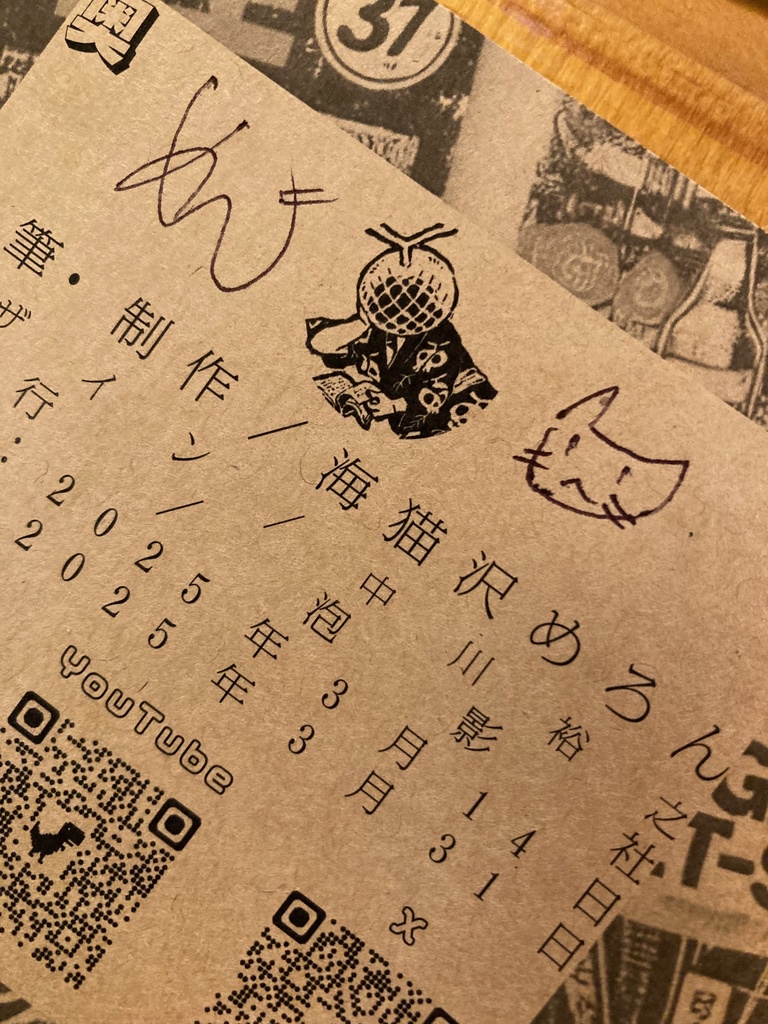 31
奥
筆・制作/海猫沢めろん
ザイン/中川裕之
行/泡影社
:2025年3月14日
2025年3月31日
YouTube
X